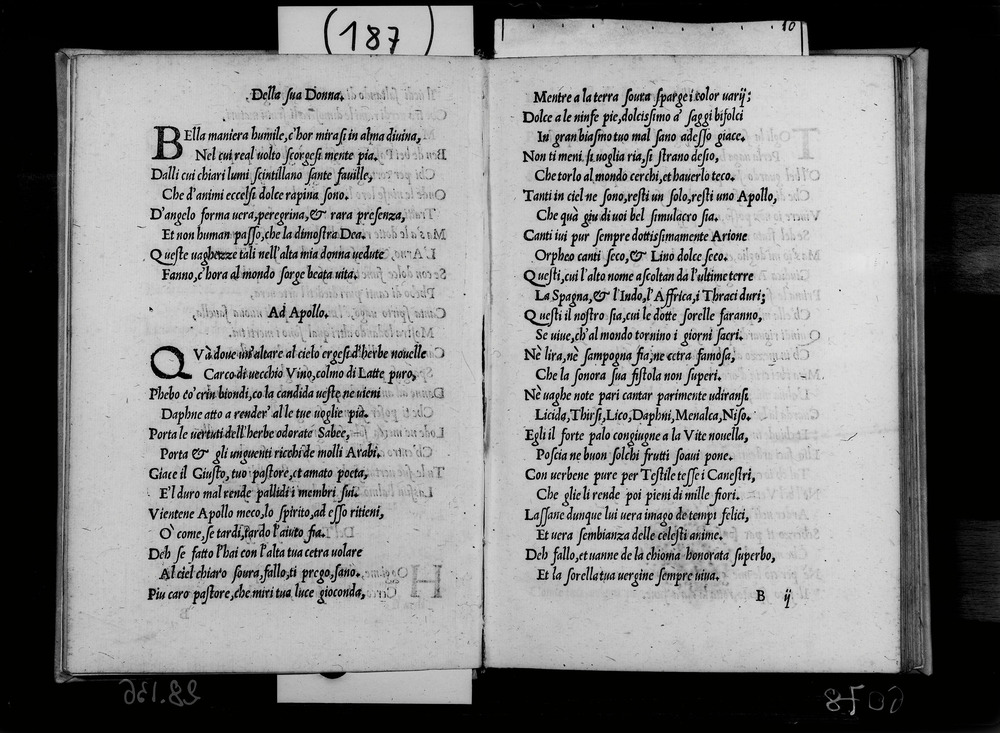 (187)
10
Della sua Donna.
BElla maniera humile, c'hor mirasi in alma diuina,
Nel cui real uolto scorgesi mente pia.
Dalli cui chiari lumi scintillano sante fauille,
Che d'animi eccelsi dolce rapina sono.
D'angelo forma uera, peregrina, & rara presenza,
Et non human passo, che la dimostra Dea.
Queste uaghezze tali nell'alta mia donna uedute
Fanno, c'hora al mondo sorge beata uita.
Ad Apollo.
QVà doue un'altare al cielo ergesi d'herbe nouelle
Carco di uecchio Vino, colmo di Latte puro,
Phebo co' crin biondi, co la candida ueste ne uieni
Daphne atto a render' al le tue uoglie pia.
Porta le uertuti dell'herbe odorate Sabee,
Porta & gli unguenti ricchi de molli Arabi.
Giace il Giusto, tuo pastore, et amato poeta,
E'l duro mal rende pallidi i membri sui.
Vientene Apollo meco, lo spirito, ad esso ritieni,
O' come, se tardi, tardo l'aiuto fia.
Deh se fatto l'hai con l'alta tua cetra uolare
Al ciel chiaro soura, fallo, ti prego, sano.
Piu caro pastore, che miri tua luce gioconda,
Mentre a la terra soura sparge i color uarij;
Dolce a le ninfe pie, dolcissimo a' saggi bifolci
In gran biasmo tuo mal sano adesso giace.
Non ti meni si uoglia ria, si strano desio,
Che torlo al mondo cerchi, et hauerlo teco.
Tanti in ciel ne sono, resti un solo, resti uno Apollo,
Che quà giu di uoi bel simulacro sia.
Canti iui pur sempre dottissimamente Arione
Orpheo canti seco, & Lino dolce seco.
Questi, cui l'alto nome ascoltan da l'ultime terre
La Spagna, & l'Indo, l'Affrica, i Thraci duri;
Questi il nostro sia, cui le dotte sorelle faranno,
Se uiue, ch'al mondo tornino i giorni sacri.
Nè lira, nè sampogna fia, ne cetra famosa,
Che la sonora sua fistola non superi.
Nè uaghe note pari cantar parimente udiransi
Licida, Thirsi, Lico, Daphni, Menalca, Niso.
Egli il forte palo congiugne a la Vite nouella,
Poscia ne buon solchi frutti soaui pone.
Con uerbene pure per Testile tesse i Canestri,
Che glie li rende poi pieni di mille fiori.
Lassane dunque lui uera imago de tempi felici,
Et uera sembianza delle celesti anime.
Deh fallo, et uanne de la chioma honorata superbo,
Et la sorella tua uergine sempre uiua.
B ij
28.136
6078